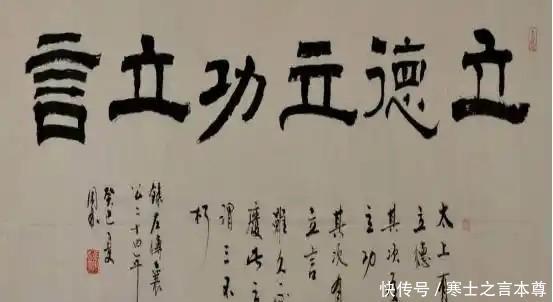 立德立功立言
太上有
立德
其次有
立功
其次有
立言
雖久不
廢此之
謂三不
朽
錄左傳襄
公二十四年
癸巳夏
快传号 / 寒士之言本尊